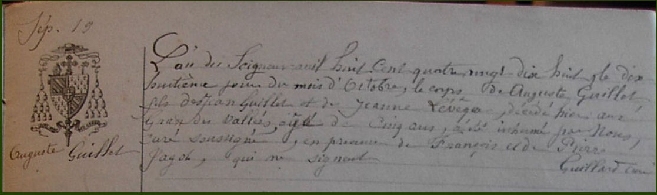 Sép. 19
Auguste Guillot
L'an du Seigneur mil huit cent quatre vingt dix huit et le dix
huitième jour du mois d'Octobre, le corps de Auguste Guillot
fils de Jean Guillot et de Jeanne Lévêque, décédé hier aux
des Vallées, âgé de Cinq ans, a été inhumé par Nous,
curé soussigné, en présence de François et de Pierre
Jagot, qui ne signent
Guillard curé